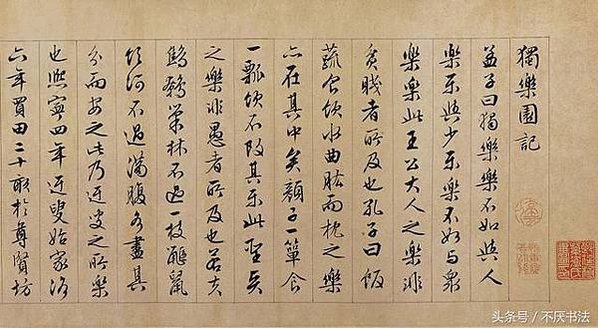 獨樂園記
孟子曰獨樂樂不如與人
樂樂與少樂樂不如与衆
樂樂此王公大人之樂非
貧賤者所及也孔子曰飯
蔬食飲水曲肱而枕之樂
亦在其中矣顏子一簞食
一瓢飲不改其樂此聖賢
之樂非愚者所及也若夫
鷦鷯巢林不過一枝鼴鼠
飲河不過滿腹各盡其
分而安之此乃迂叟之所樂
也熙寧四年迂叟始家洛
六年買田二十畝於尊賢坊
头条号 / 不厌书法